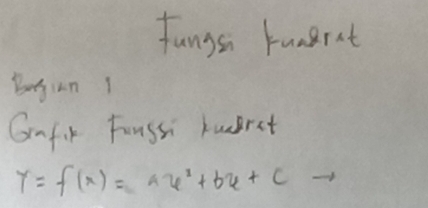 Fungsi kuadrat
Bagian 1
Grafik Fungsi kuadrat
Y = f(x) = ax² + bx + c →